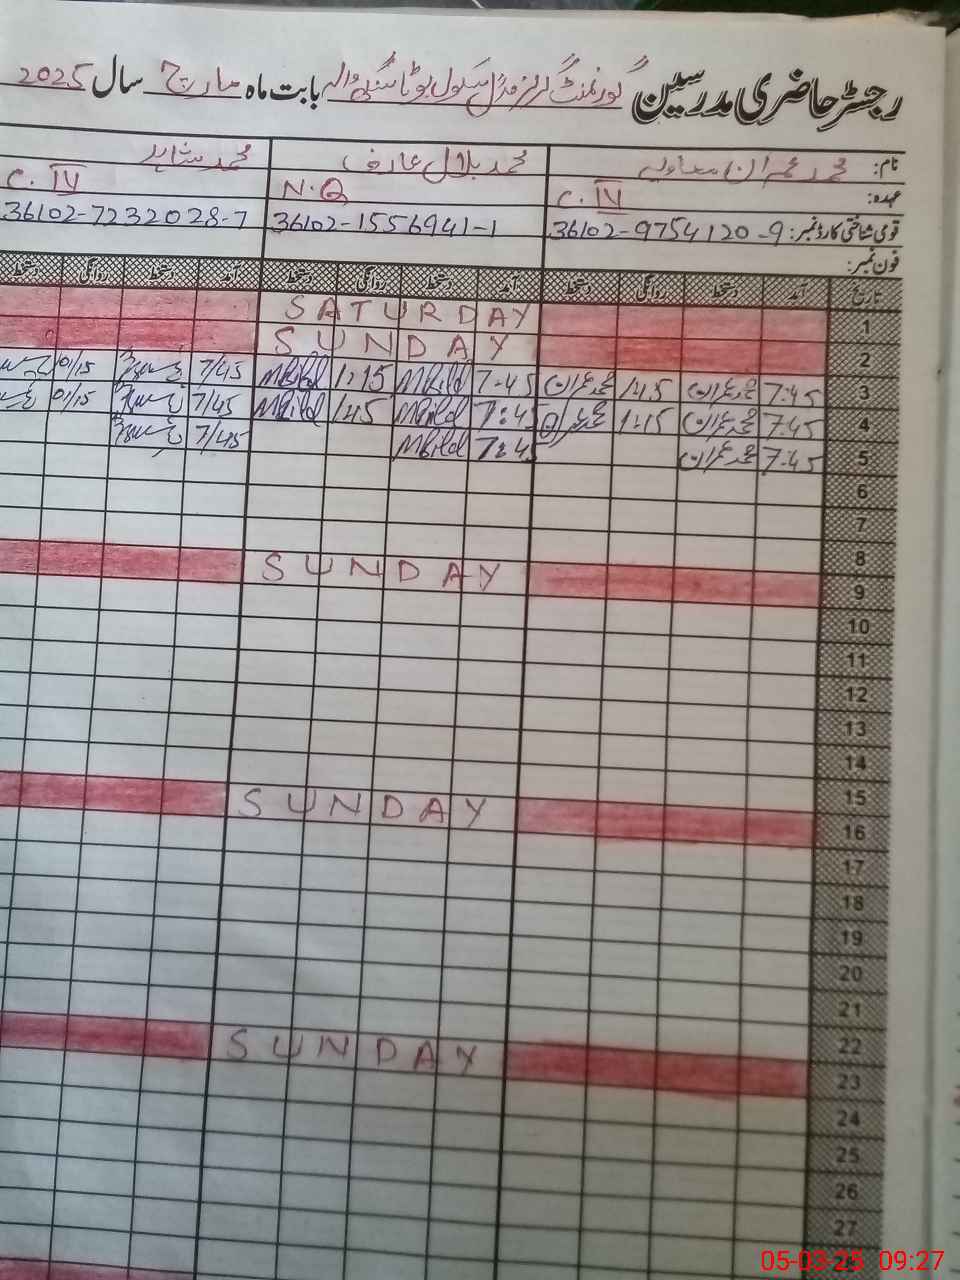 رجسٹر حاضری مدرسین گورنمنٹ گرلز مڈل سکول بوٹا سنگھ والہ بابت ماہ مارچ سال 2025
نام: محمد عمران معاویہ محمد بلال عارف محمد شاہد
عہدہ: C.IV N.Q C.IV
قومی شناختی کارڈ نمبر: 36102-9754120-9 36102-1556941-1 36102-7232028-7
فون نمبر:
تاریخ آمد دستخط روانگی دستخط آمد دستخط روانگی دستخط آمد دستخط روانگی دستخط
1 SATURDAY
2 SUNDAY
3 7:45 محمد عمران 1:15 محمد عمران 7:45 MBilal 1:15 MBilal 7/45 01/15
4 7:45 محمد عمران 1:15 7:45 MBilal 1:15 MBilal 7/45 01/15
5 7:45 محمد عمران 7:45 MBilal 7/45
6
7
8
9 SUNDAY
10
11
12
13
14
15
16 SUNDAY
17
18
19
20
21
22
23 SUNDAY
24
25
26
27
05-03-25 09:27